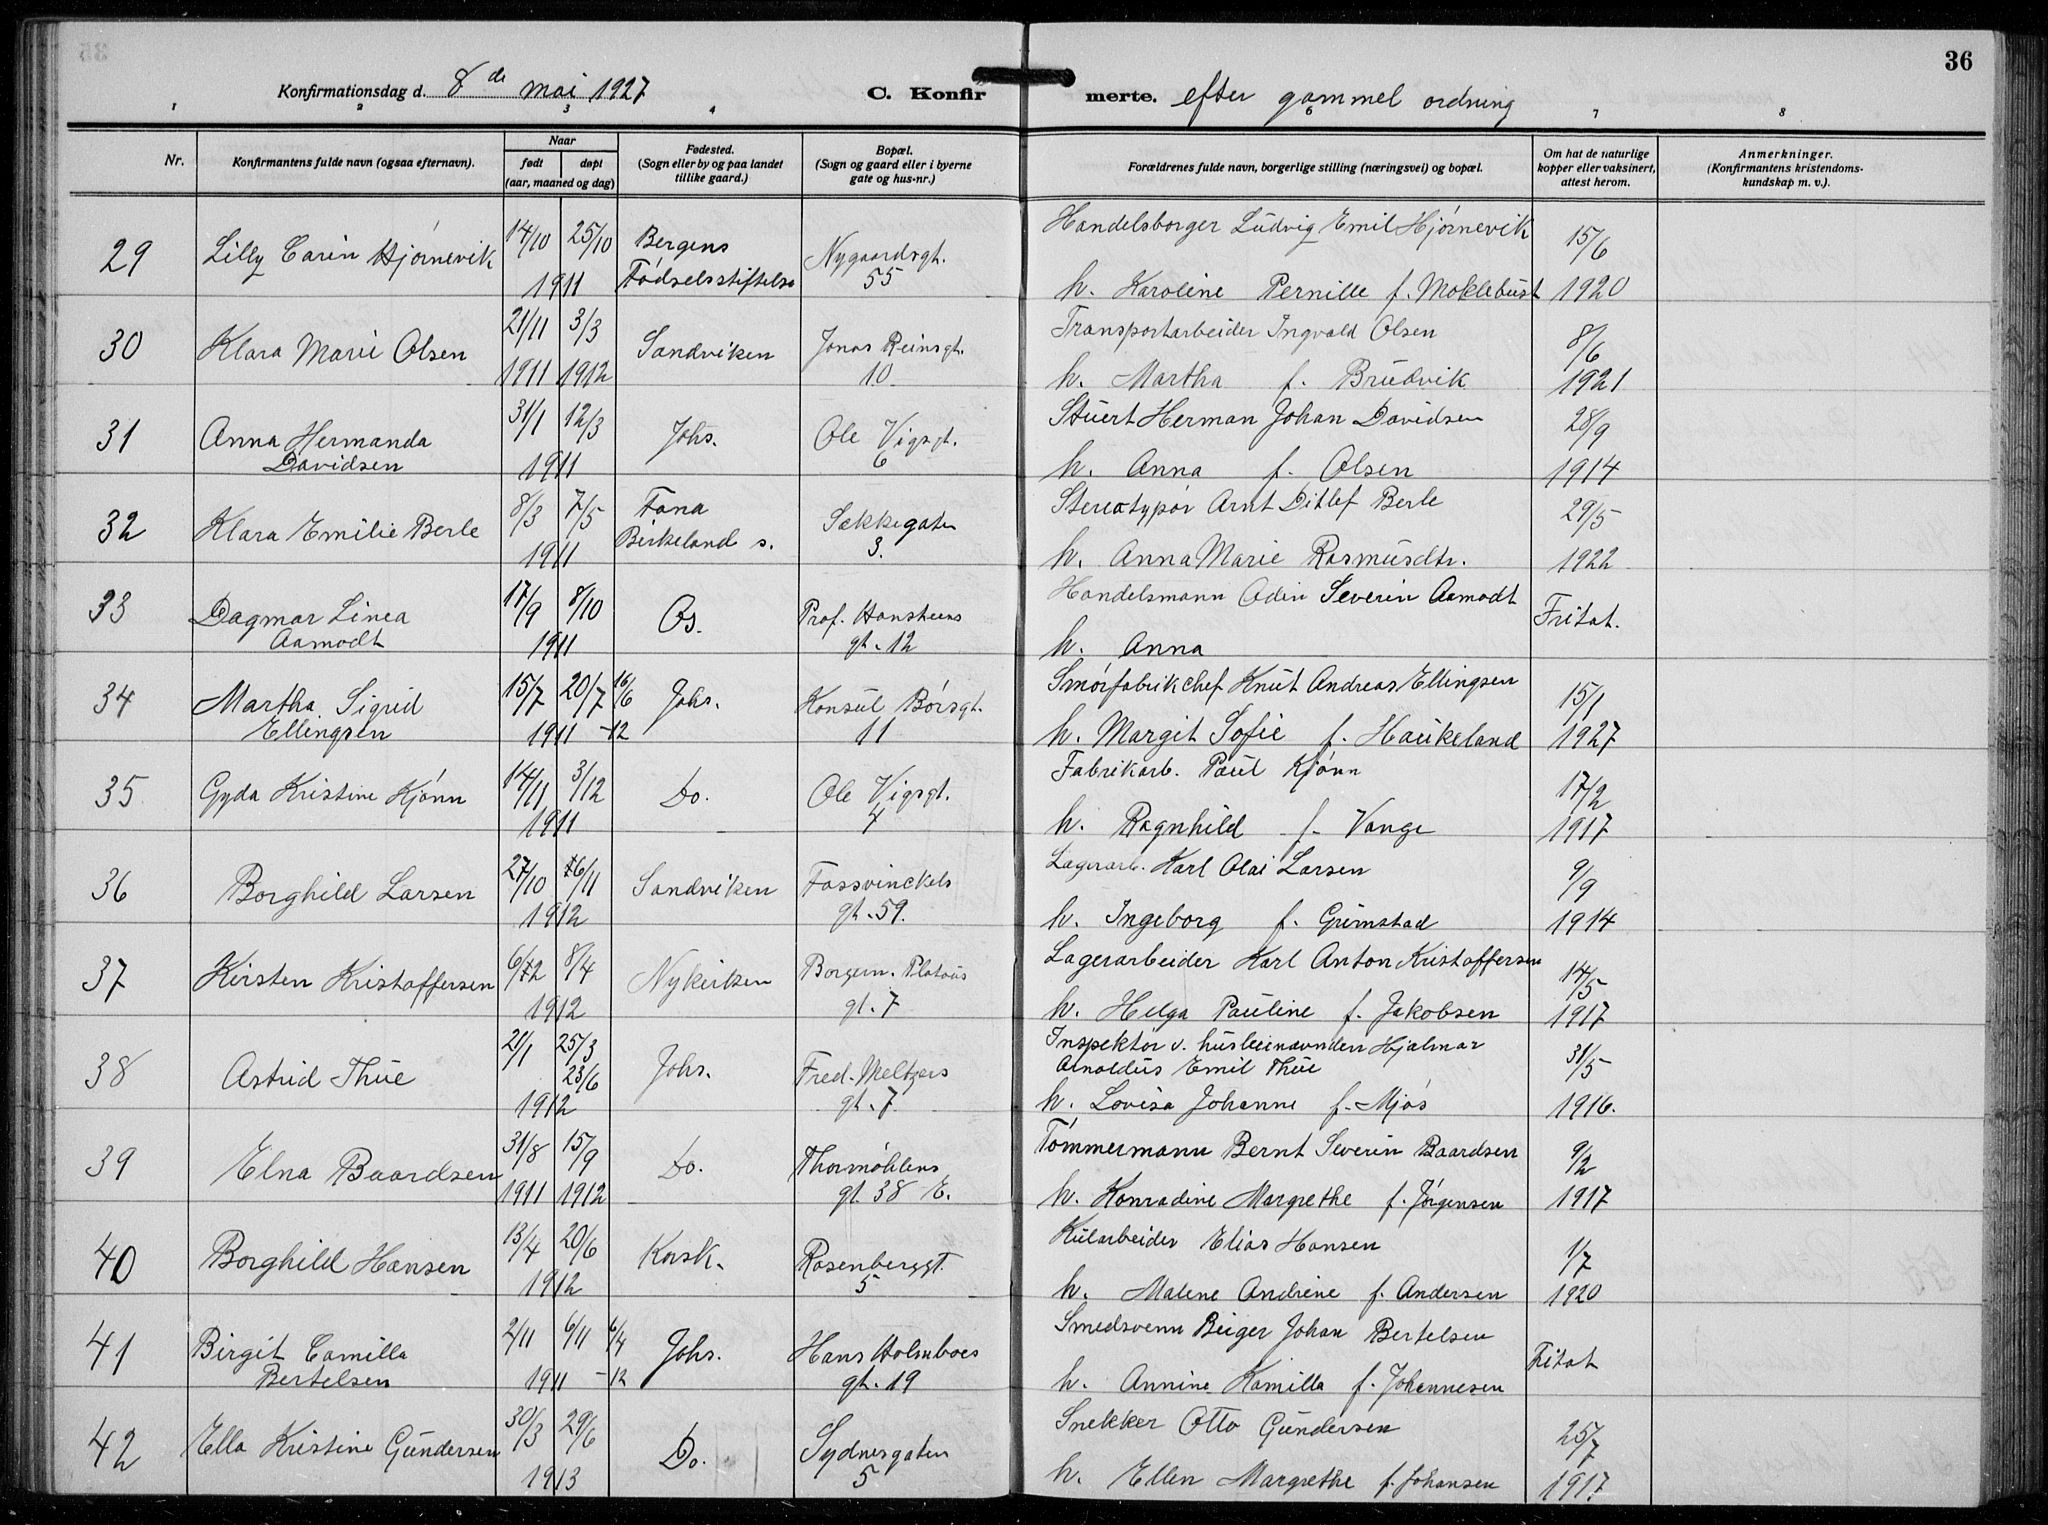 36
Konfirmationsdag d. 8de mai 1927 C. Konfirmerte. efter gammel ordning
1 2 3 4 6 7 8
Nr. Konfirmantens fulde navn (ogsaa efternavn). Naar født døpt (aar, maaned og dag) Fødested. (Sogn eller by og paa landet tillike gaard.) Bopæl. (Sogn og gaard eller i byerne gate og hus-nr.) Forældrenes fulde navn, borgerlige stilling (næringsvei) og bopæl. Om hat de naturlige kopper eller vaksinert, attest herom. Anmerkninger. (Konfirmantens kristendomskundskap m. v.).
29 Lilly Carin Hjørnevik 14/10 25/10 Bergens Nygaardsgt. Handelsborger Ludvig Emil Hjørnevik 15/6
1911 Fødselsstiftelse 55 h. Karoline Pernille f. Moklebust 1920
30 Klara Marie Olsen 21/11 3/3 Sandviken Jonas Reinsgt. Transportarbeider Ingvald Olsen 8/6
1911 1912 10 h. Martha f. Brudvik 1921
31 Anna Hermanda 31/1 12/3 Johs. Ole Vigsgt. Stuert Herman Johan Davidsen 28/9
Davidsen 1911 6 h. Anna f. Olsen 1914
32 Klara Emilie Berle 8/3 7/5 Fana Sækkegaten Stereotypør Arnt Ditlef Berle 29/5
1911 Birkeland s. 3. h. Anna Marie Rasmusdtr. 1922
33 Dagmar Linea 17/9 8/10 Os. Prof. Hansteens Handelsmann Odin Severin Aamodt Fritat.
Aamodt 1911 gt. 12 h. Anna
34 Martha Sigrid 15/7 20/7 16/6 Johs. Konsul Børsgt. Smørfabrikchef Knut Andreas Ellingsen 15/1
Ellingsen 1911 -12 11 h. Margit Sofie f. Haukeland 1927
35 Gyda Kristine Kjønn 14/11 3/12 Do. Ole Vigsgt. Fabrikarb. Paul Kjønn 17/2
1911 4 h. Ragnhild f. Vange 1917
36 Borghild Larsen 27/10 16/11 Sandviken Fossvinckels Lagerarb. Karl Olai Larsen 9/9
1912 gt. 59. h. Ingeborg f. Grimstad 1914
37 Kirsten Kristoffersen 6/12 8/4 Nykirken Borgem. Platous Lagerarbeider Karl Anton Kristoffersen 14/5
1912 gt. 7 h. Helga Pauline f. Jakobsen 1917
38 Astrid Thue 21/1 25/3 Johs. Fred. Meltzers Inspektør v. husleienævnden Hjalmar 31/5
23/6 Arnoldus Emil Thue
1912 gt. 7 h. Lovisa Johanne f. Mjøs 1916.
39 Elna Baardsen 31/8 15/9 Do. Thormøhlens Tømmermann Bernt Severin Baardsen 9/2
1911 1912 gt. 38 E. h. Konradine Margrethe f. Jørgensen 1917
40 Borghild Hansen 13/4 20/6 Korsk. Rosenberggt. Kularbeider Elias Hansen 1/7
1912 5 h. Malene Andrine f. Andersen 1920
41 Birgit Camilla 2/11 6/11 6/4 Johs. Hans Holmboes Smedsvenn Birger Johan Bertelsen Fritat
Bertelsen 1911 -12 gt. 19 h. Annine Kamilla f. Johannesen
42 Ella Kristine Gundersen 30/3 29/6 Do. Sydnesgaten Snekker Otto Gundersen 25/7
1913 5 h. Ellen Margrethe f. Johansen 1917.